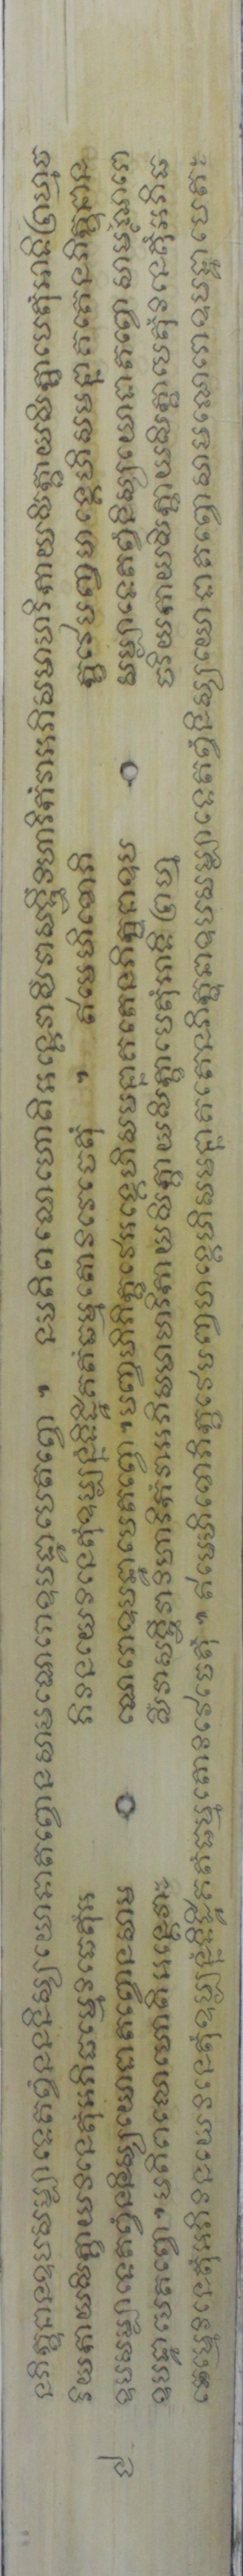 នភិក្ខុនានឧបសម្បាទេតព្វំននិស្សយោទាតព្វោនសាមណេរោឧបដ្ឋាបេតព្វោ ។ នបដិពលោហោតិអន្តេវាសិវាសទ្ធិវិហារិកំវាអភិសមាចារិកាយសិក្ខាយសិក្ខាបេតុំអាទិព្រហ្មច
រិយកាយសិក្ខាយវិនេតុំអភិធម្មេវិនេតុំអ ភិវិនយេវិនេតុំឧប្បន្នំទិដ្ឋិគតំធម្មតោវិវេចេតុំ ។ ឥមេហិខោភិ ក្ខវេបញ្ចហង្គេហិសមន្នាគតេនភិក្ខុនាន
ឧបសម្បាទេតព្វំននិស្សយោទាតព្វោនសាម ណេរោឧបដ្ឋាបេតព្វោ ។ បញ្ចហិភិក្ខវេអង្គេហិសមន្នាគតេនភិក្ខុនាឧប សម្បាទេតព្វំនិស្សយោទាតព្វោសាមណេរោ
ឧបដ្ឋាបេតព្វោ ។ បដិពលោហោតិអន្តេវាៈ សិវាសទ្ធិវិហារិកំវាអភិសមាចារិកាយសិក្ខាយសិក្ខាបេតុំអាទិព្រហ្ម ចរិយកាយសិក្ខាយសិក្ខាបេតុំវិនេតុំអភិធ
ម្មេវិនេតុំអភិវិនយេវិនេតុំឧប្បន្នំទិដ្ឋិគតំធម្មតោវិវេចេតុំ ។ ឥមេហិខោភិក្ខវេបញ្ចហង្គេហិសមន្នាគតេនភិក្ខុនាឧបសម្បាទេតព្វំនិស្សយោទាតព្វោសាមណេរោឧបដ្ឋាបេតៈ